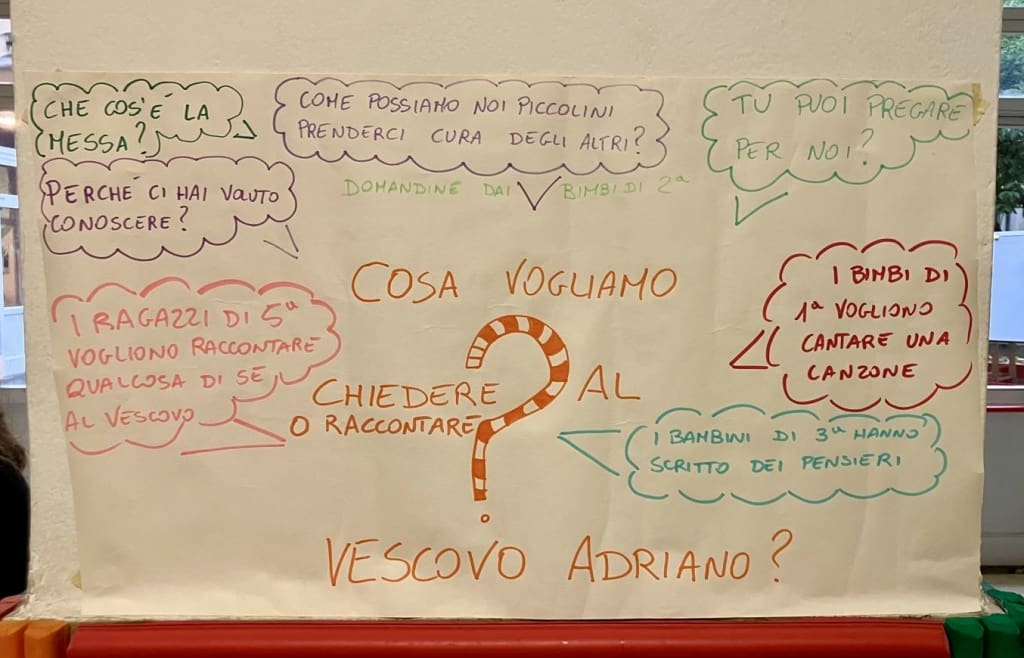 CHE COS'É LA
MESSA?
COME POSSIAMO NOI PICCOLINI
PRENDERCI CURA DEGLI ALTRI?
TU PUOI PREGARE
PER NOI?
PERCHÉ CI HAI VOLUTO
CONOSCERE?
DOMANDINE DAI BIMBI DI 2ª
COSA VOGLIAMO
CHIEDERE
O RACCONTARE
?
AL
VESCOVO ADRIANO?
I RAGAZZI DI 5ª
VOGLIONO RACCONTARE
QUALCOSA DI SÉ
AL VESCOVO
I BIMBI DI
1ª VOGLIONO
CANTARE UNA
CANZONE
I BAMBINI DI 3ª HANNO
SCRITTO DEI PENSIERI